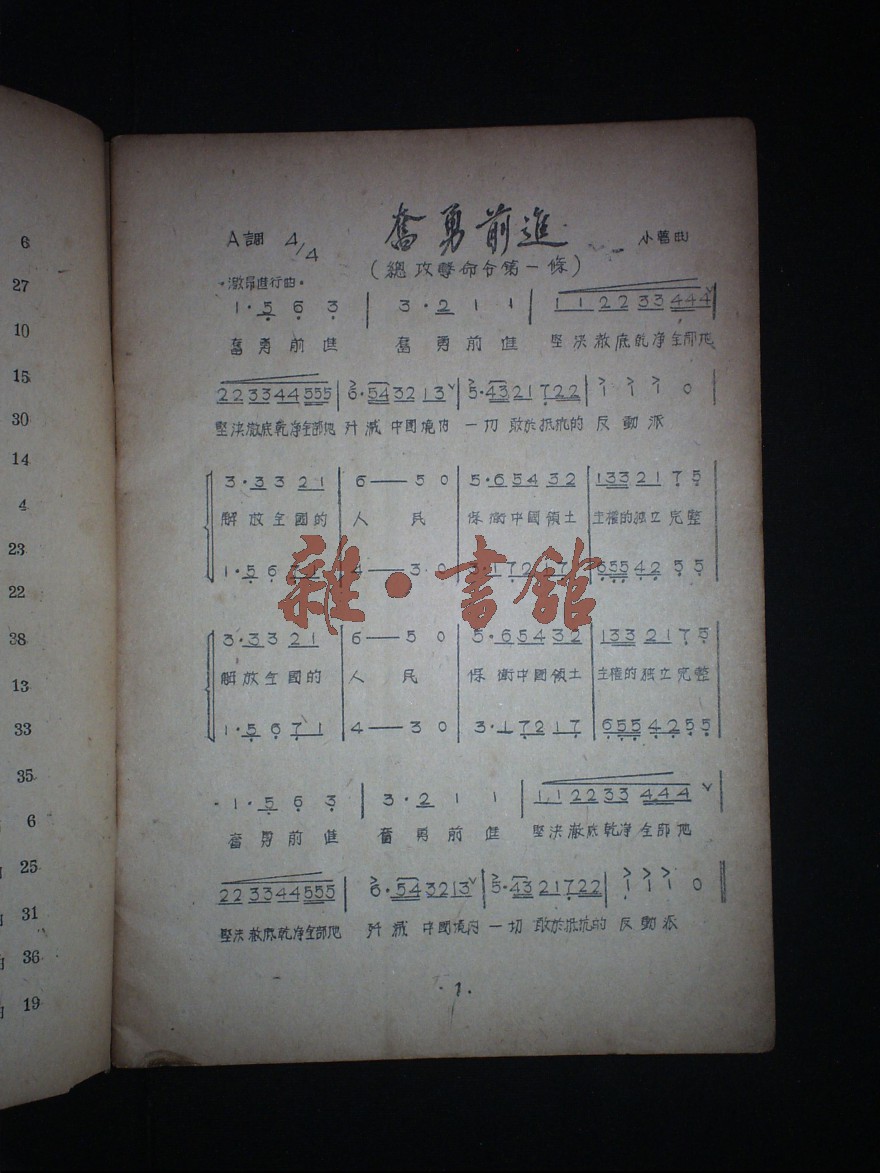 6
27
10
15
30
14
4
23
22
38
13
33
35
6
25
31
36
19
奮勇前進
A調 4/4 小舊曲
(總攻擊命令第一條)
·激昂進行曲·
1·5 6 3 | 3·2 1 1 | 1 1 2 2 3 3 4 4 4 |
奮勇前進 奮勇前進 堅決澈底乾净全部地
2 2 3 3 4 4 5 5 5 | 6·5 4 3 2 1 3 | 5·4 3 2 1 7 2 2 | 1 1 1 0 |
堅决澈底乾净全部地 歼滅中國境内 一切敢於抵抗的 反動派
3·3 3 2 1 | 6 — 5 0 | 5·6 5 4 3 2 | 1 3 3 2 1 7 5 |
解放全國的 人民 保衛中國領土 主權的独立完整
1·5 6 7 1 | 4 — 3 0 | 3·1 7 2 1 7 | 6 5 5 4 2 5 5 |
雜·書館
3·3 3 2 1 | 6 — 5 0 | 5·6 5 4 3 2 | 1 3 3 2 1 7 5 |
解放全國的 人民 保衛中國領土 主權的独立完整
1·5 6 7 1 | 4 — 3 0 | 3·1 7 2 1 7 | 6 5 5 4 2 5 5 |
1·5 6 3 | 3·2 1 1 | 1 1 2 2 3 3 4 4 4
奮勇前進 奮勇前進 堅决澈底乾净全部地
2 2 3 3 4 4 5 5 5 | 6·5 4 3 2 1 3 | 5·4 3 2 1 7 2 2 | 1 1 1 0 ‖
堅决澈底乾净全部地 歼滅中國境内 一切敢於抵抗的 反動派
·1·